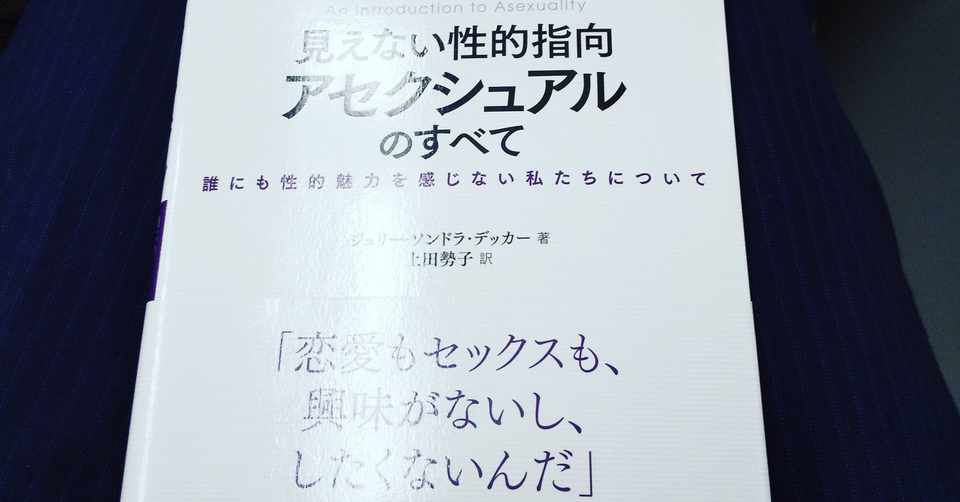 An Introduction to Asexuality
見えない性的指向
アセクシュアル
のすべて
誰にも性的魅力を感じない私たちについて
ジュリー・ソンドラ・デッカー 著
上田勢子 訳
「恋愛もセックスも、
興味がないし、
したくないんだ」